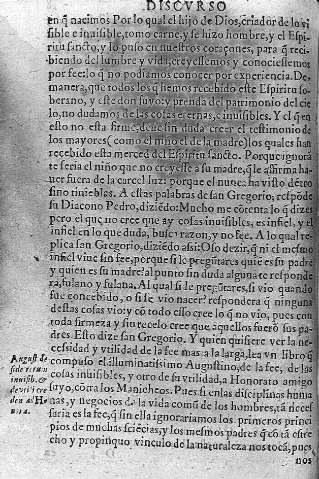 DISCVRSO
en q̃ nacimos Por lo qual el hijo de Dios, criador de lo vi
sible e inuisible, tomo carne, y se hizo hombre, y el Espiri
tu sancto, y lo puso en nuestros coraçones, para q̃ reci-
biendo del lumbre y vida, creyessemos y conociessemos
por fee, lo q̃ no podiamos conocer por experiencia. De
manera, que todos los q̃ hemos recebido este Espiritu so-
berano, y este don suyo, y prenda del patrimonio del cie
lo, no dudamos de las cosas eternas, e inuisibles. Y el q̃ en
esto no esta firme, deue sin duda creer el testimonio de
los mayores (como el niño el de la madre) los quales han
recebido esta merced del Espiritu sancto. Porque ignorã
te seria el niño que no creyesse a su madre, q̃ le affirma ha-
uer fuera de la carcel luz: porque el nunca ha visto dẽtro
sino tinieblas. A estas palabras de san Gregorio, respõde
su Diacono Pedro, diziẽdo: Mucho me cõtenta lo q̃ dizes
pero el que no cree que ay cosas inuisibles, es infiel, y el
infiel en lo que duda, busca razon, y no fee. A lo qual re-
plica san Gregorio, diziẽdo assi: Oso dezir, q̃ ni el mesmo
infiel viue sin fee, porque si le pregũtares quiẽ es su padre
y quien es su madre, al punto sin duda alguna te responde
ra, fulano y fulana. Al qual si le pregũtares, si vio quando
fue concebido, o si se vio nacer? respondera q̃ ninguna
destas cosas vio: y cõ todo esso cree lo q̃ no vio, pues con
toda firmeza y sin recelo cree que aquellos fuerõ sus pa-
dres. Esto dize san Gregorio. Y quien quisiere ver la ne-
cessidad y vtilidad de la fee mas a la larga, lea vn libro q̃
compuso el illuminatissimo Augustino, de la fee, de las
cosas inuisibles, y otro de su vtilidad, a Honorato amigo
suyo, cõtra los Manicheos. Pues si en las disciplinas huma
nas, y negocios de la vida comũ de los hombres, tã neces
saria es la fee, q̃ sin ella ignorariamos los primeros princi
pios de muchas sciẽcias, y los mesmos padres q̃ cõ tã estre
cho y propinquo vinculo de la naturaleza nos tocã, pues
nos
August. de
fide rerum
inuisib. &
de vtil. cre
den. ad H